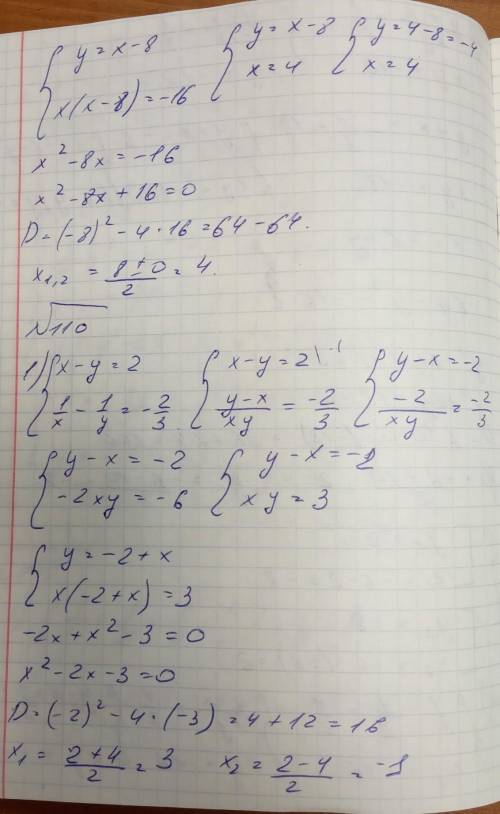 { y = x - 8   { y = x - 8   { y = 4 - 8 = -4
{ x(x - 8) = -16   { x = 4   { x = 4
x² - 8x = -16
x² - 8x + 16 = 0
D = (-8)² - 4 · 16 = 64 - 64.
x₁,₂ = (8 ± 0)/2 = 4.
√110
1) { x - y = 2   { x - y = 2 | -1   { y - x = -2
{ 1/x - 1/y = -2/3.   { (y - x)/xy = -2/3   { -2/xy = -2/3
{ y - x = -2   { y - x = -2
{ -2xy = -6   { xy = 3
{ y = -2 + x
{ x(-2 + x) = 3
-2x + x² - 3 = 0
x² - 2x - 3 = 0
D = (-2)² - 4 · (-3) = 4 + 12 = 16
x₁ = (2 + 4)/2 = 3   x₂ = (2 - 4)/2 = -1